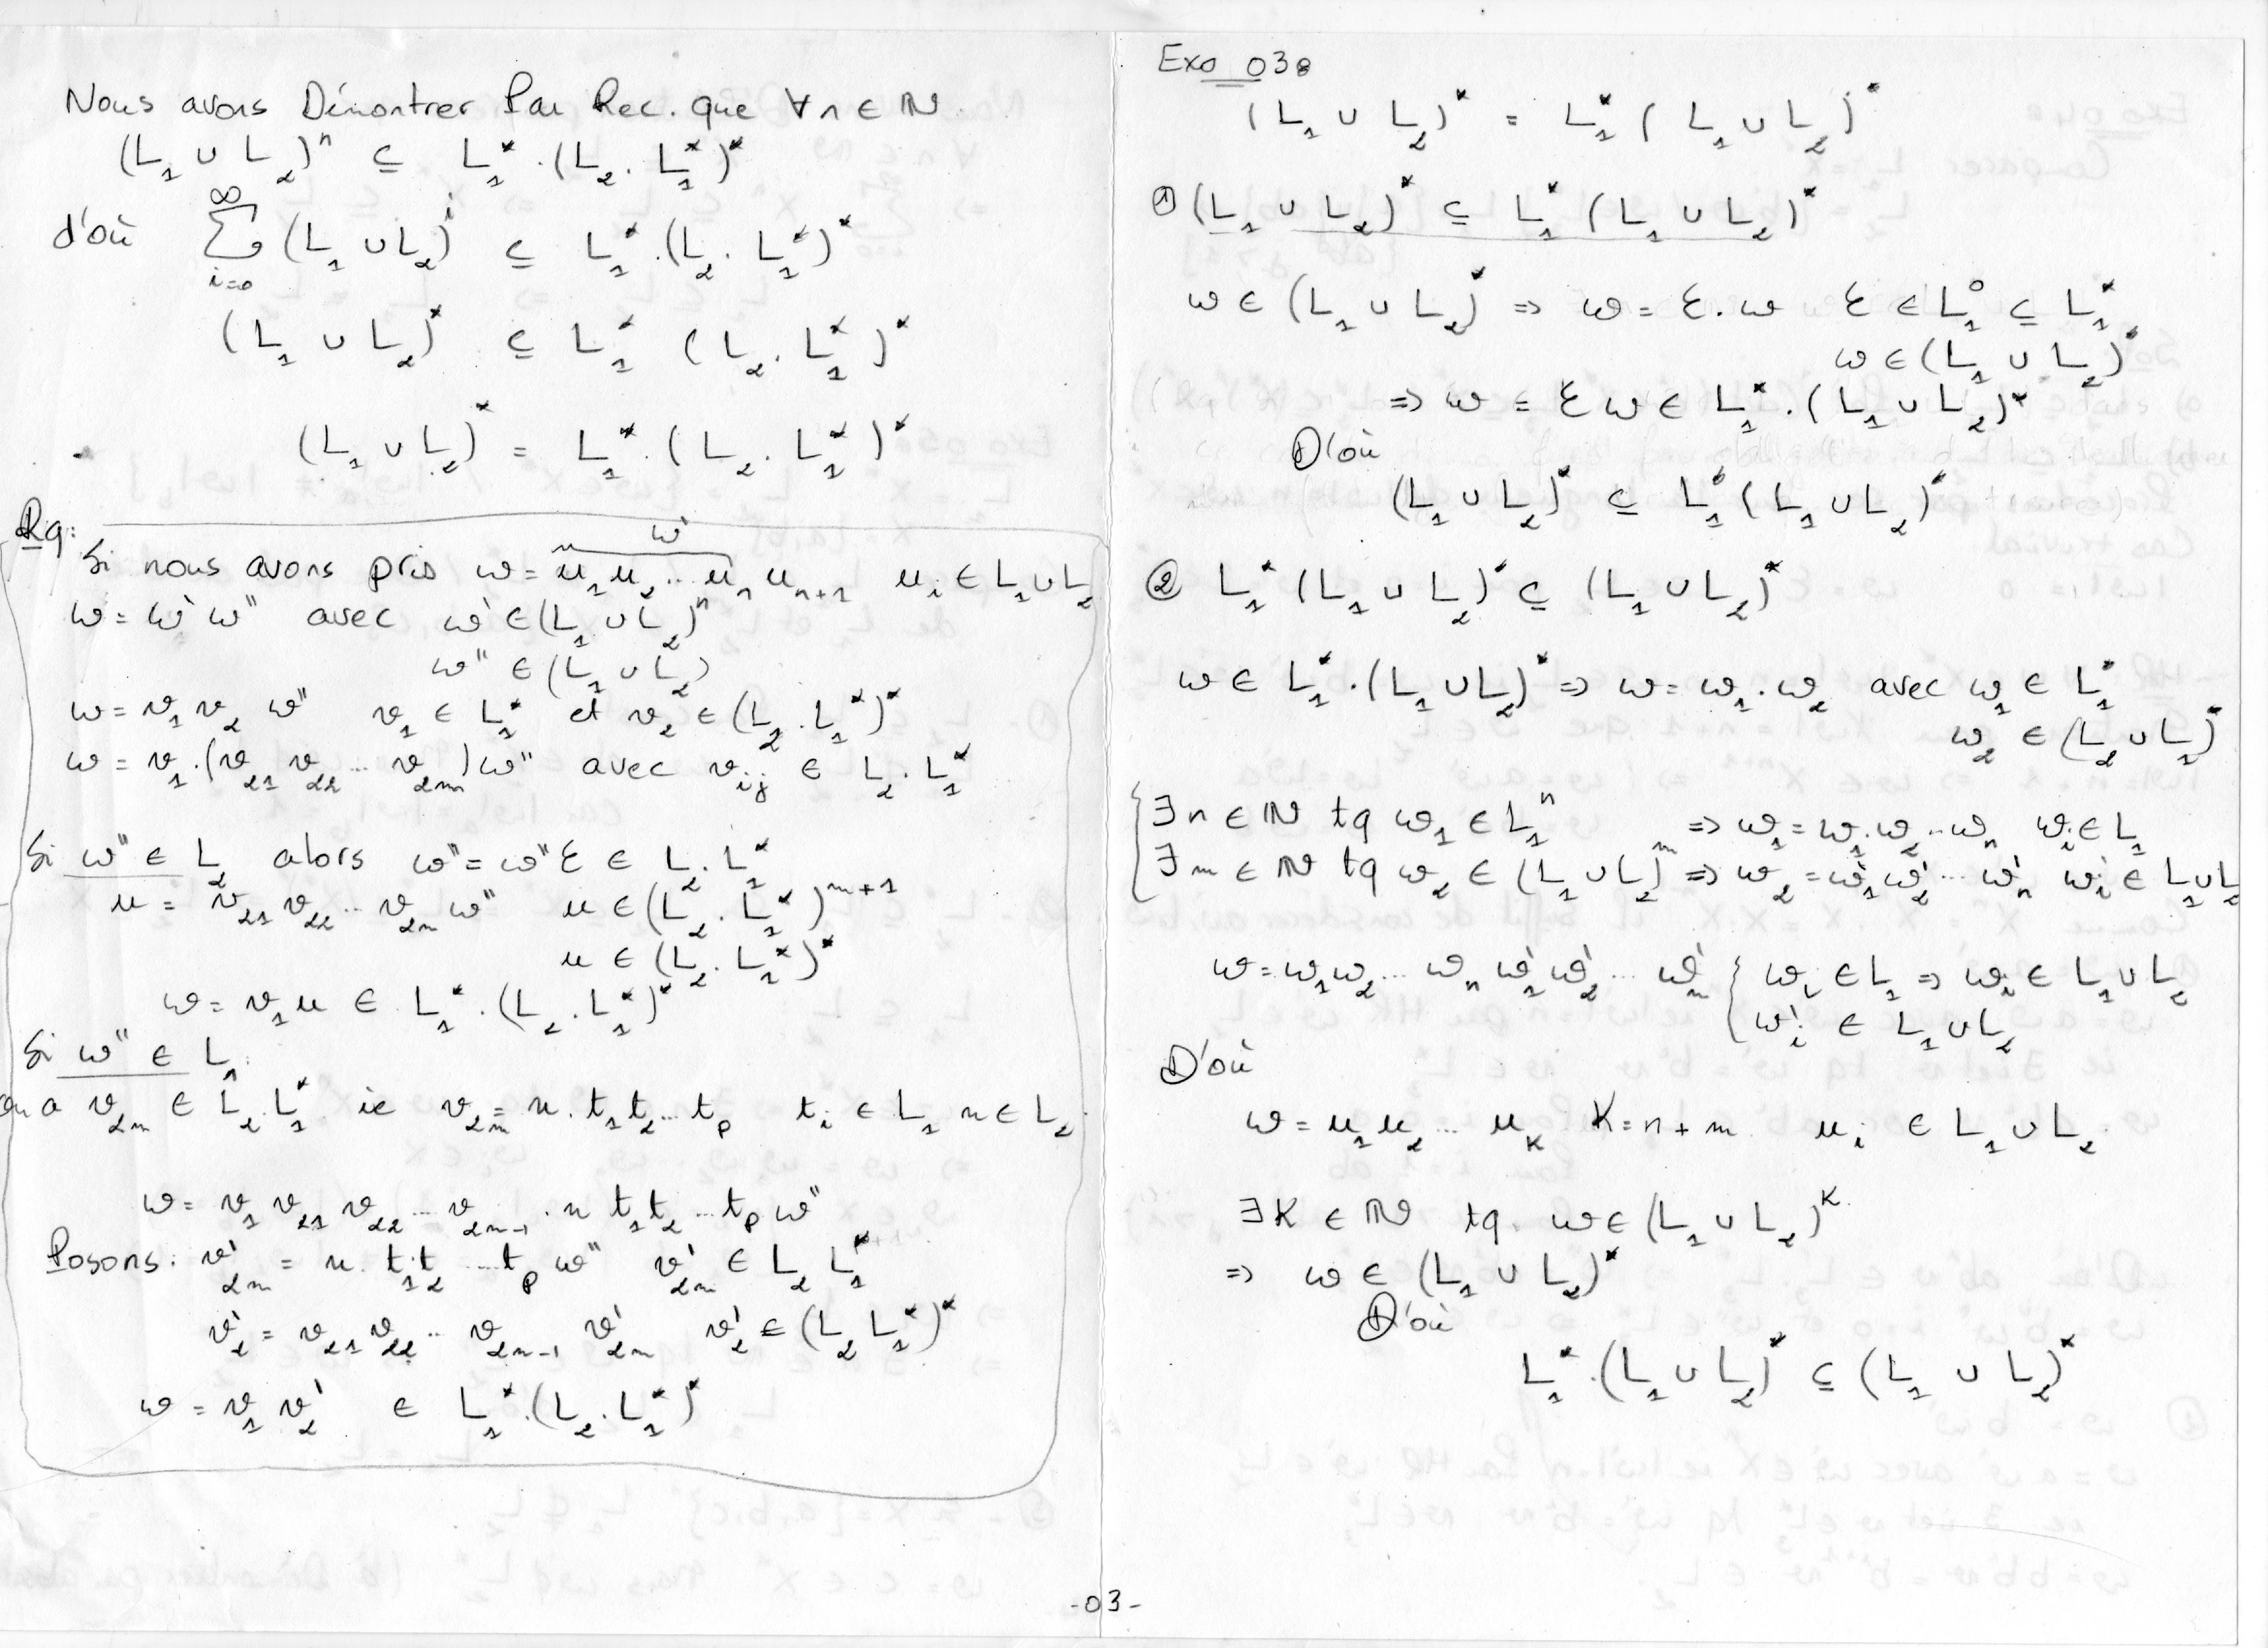 Nous avons Démontrer Par Rec. que ∀n ∈ ℕ.
(L₁ ∪ L₂)ⁿ ⊆ L₁* . (L₂ . L₁*)*
d'où ∑_{i=0}^{∞} (L₁ ∪ L₂)ⁱ ⊆ L₁* . (L₂ . L₁*)*
(L₁ ∪ L₂)* ⊆ L₁* (L₂ . L₁*)*
(L₁ ∪ L₂)* = L₁* . (L₂ . L₁*)*
Rq:
ω'
Si nous avons pris ω = u₁u₂ ... uₙ uₙ₊₁ uᵢ ∈ L₁∪L₂
ω = ω' ω" avec ω' ∈ (L₁ ∪ L₂)ⁿ
ω" ∈ (L₁ ∪ L₂)
ω = v₁ v₂ ω" v₁ ∈ L₁* et v₂ ∈ (L₂ . L₁*)*
ω = v₁ . (v₂₁ v₂₂ ... v₂ₘ) ω" avec vᵢⱼ ∈ L₂ . L₁*
Si ω" ∈ L₂ alors ω" = ω" ε ∈ L₂ . L₁*
u = v₂₁ v₂₂ ... v₂ₘ ω" u ∈ (L₂ . L₁*)ᵐ⁺¹
u ∈ (L₂ . L₁*)*
ω = v₁ u ∈ L₁* . (L₂ . L₁*)*
Si ω" ∈ L₁.
on a v₂ₘ ∈ L₂ L₁* ie v₂ₘ = n . t₁t₂ ... tₚ tᵢ ∈ L₁ n ∈ L₂
ω = v₁ v₂₁ v₂₂ ... v₂ₘ₋₁ . n t₁t₂ ... tₚ ω"
Posons: v'₂ₘ = n . t₁t₂ ... tₚ ω" v'₂ₘ ∈ L₂ L₁*
v'₂ = v₂₁ v₂₂ .. v₂ₘ₋₁ v'₂ₘ v'₂ ∈ (L₂ L₁*)*
ω = v₁ v'₂ ∈ L₁* . (L₂ . L₁*)*
Exo 03:
(L₁ ∪ L₂)* = L₁* (L₁ ∪ L₂)*
① (L₁ ∪ L₂)* ⊆ L₁* (L₁ ∪ L₂)*
ω ∈ (L₁ ∪ L₂)* ⇒ ω = ε . ω ε ∈ L₁⁰ ⊆ L₁*
ω ∈ (L₁ ∪ L₂)*
⇒ ω = ε ω ∈ L₁* . (L₁ ∪ L₂)*
D'où
(L₁ ∪ L₂)* ⊆ L₁* (L₁ ∪ L₂)*
② L₁* (L₁ ∪ L₂)* ⊆ (L₁ ∪ L₂)*
ω ∈ L₁* . (L₁ ∪ L₂)* ⇒ ω = ω₁ . ω₂ avec ω₁ ∈ L₁*
ω₂ ∈ (L₁ ∪ L₂)*
∃ n ∈ ℕ tq ω₁ ∈ L₁ⁿ ⇒ ω₁ = ω₁ . ω₂ .. ωₙ ωᵢ ∈ L₁
∃ m ∈ ℕ tq ω₂ ∈ (L₁ ∪ L₂)ᵐ ⇒ ω₂ = ω'₁ ω'₂ ... ω'ₙ ω'ᵢ ∈ L₁∪L₂
ω = ω₁ω₂ ... ωₙ ω'₁ω'₂ ... ω'ₘ { ωᵢ ∈ L₁ ⇒ ωᵢ ∈ L₁ ∪ L₂
ω'ᵢ ∈ L₁ ∪ L₂
D'où
ω = u₁u₂ ... uₖ K = n + m uᵢ ∈ L₁ ∪ L₂.
∃ K ∈ ℕ tq. ω ∈ (L₁ ∪ L₂)ᴷ.
⇒ ω ∈ (L₁ ∪ L₂)*
D'où
L₁* . (L₁ ∪ L₂)* ⊆ (L₁ ∪ L₂)*
-03-